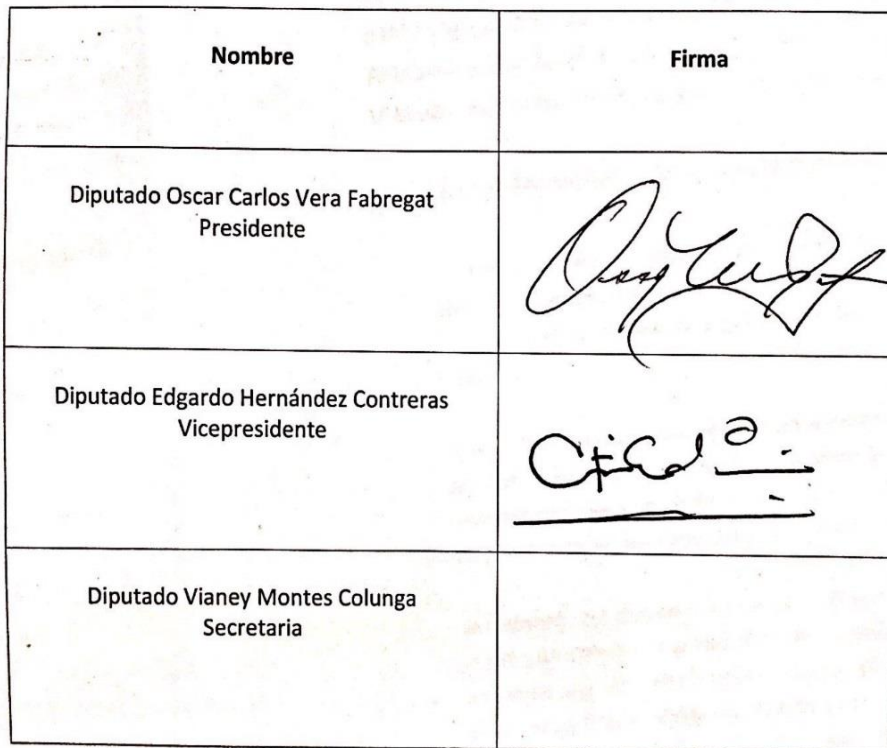 Nombre
Firma
Diputado Oscar Carlos Vera Fabregat
Presidente
Diputado Edgardo Hernández Contreras
Vicepresidente
Diputado Vianey Montes Colunga
Secretaria